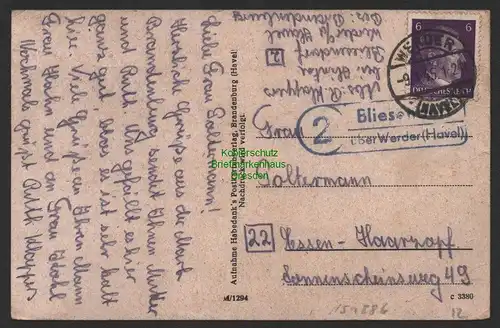 Liebe Frau Poltermann!
Herzliche Grüße aus der Mark
Brandenburg sendet Ihnen Mutter
und Ruth. Uns gefällt es hier
ganz gut, bloss es ist sehr kalt
hier. Viele Grüße an Ihren Mann
Frau Hahn und an Frau Kohl
Nochmals grüßt Ruth Klappers
Aufnahme Habedank's Postkartenverlag, Brandenburg (Havel)
Nachdruck verfolgt.
Abs. R. Klappers
bei
Bliesendorf
Werder
Bez.
2
6
6
DEUTSCHES REICH
WERDER
(HAVEL)
2
Bliesen
über Werder (Havel)
Frau
Poltermann
22 Essen-Haarzopf
Sonnenscheinsweg 49
M/1294
c 3380
151886
12
Kolberschutz
Briefmarkenhaus
Dresden